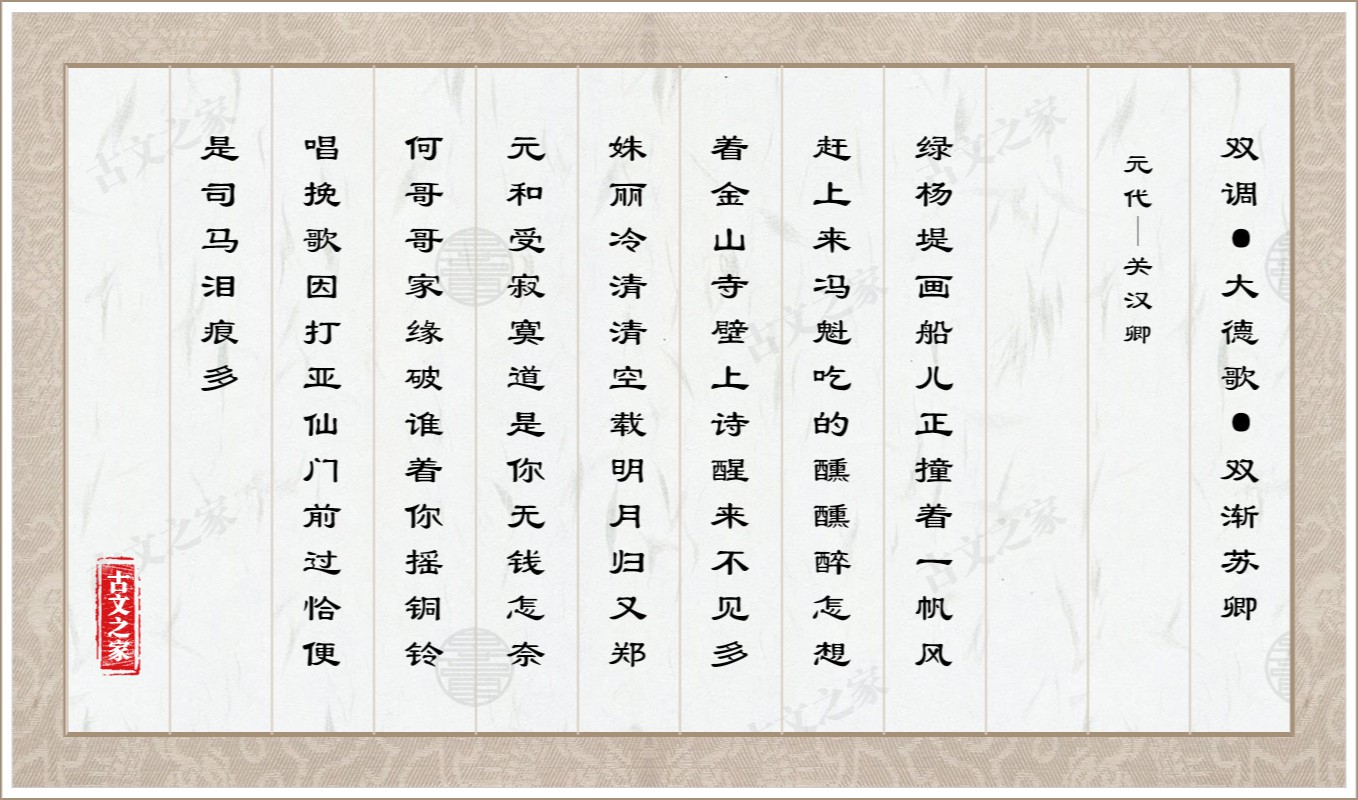 双调●大德歌●双渐苏卿
元代—关汉卿
绿杨堤画船儿正撞着一帆风
赶上来冯魁吃的醺醺醉怎想
着金山寺壁上诗醒来不见多
姝丽冷清清空载明月归又郑
元和受寂寞道是你无钱怎奈
何哥哥家缘破谁着你摇铜铃
唱挽歌因打亚仙门前过恰便
是司马泪痕多
古文之家